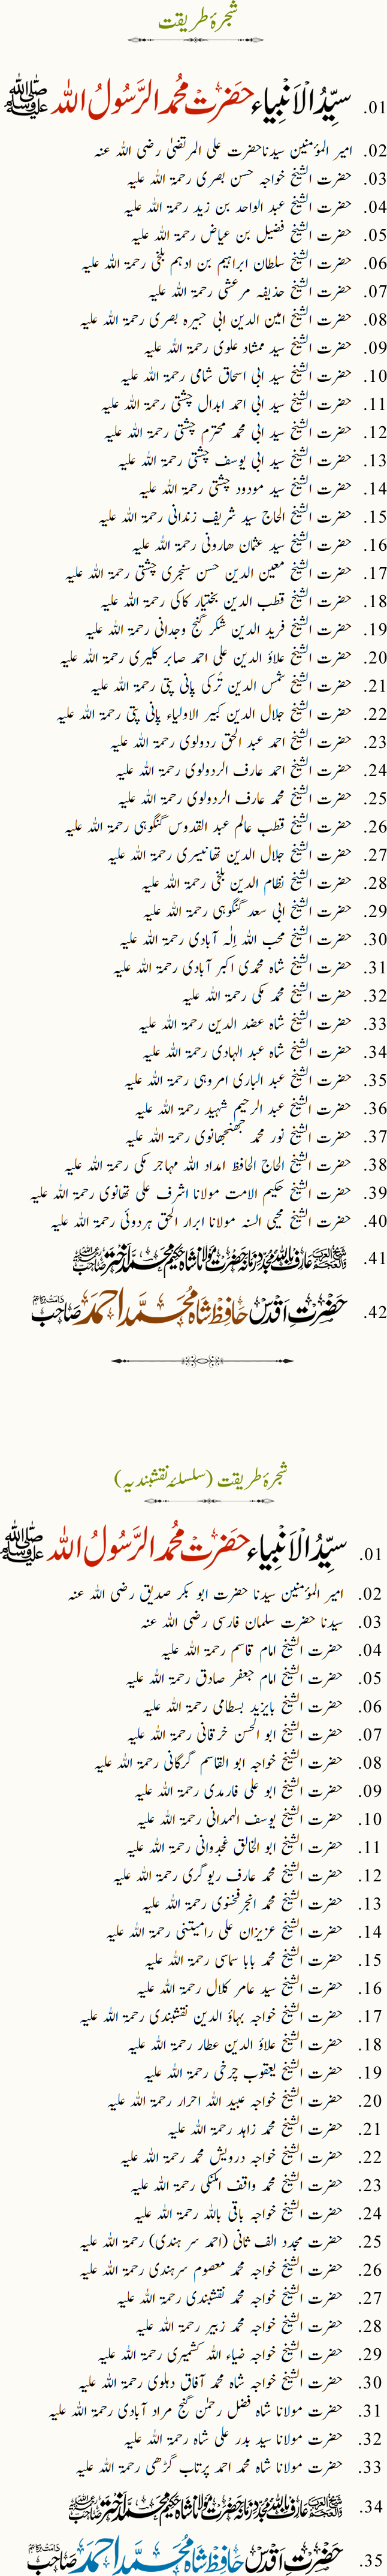 شجرۂ طریقت
01. سیّدُ الْاَنْبِیَاء حضرت مُحمد الرّسُولُ الله ﷺ
02. امیر المؤمنین سیدنا حضرت علی المرتضیٰ رضی اللہ عنہ
03. حضرت الشیخ خواجہ حسن بصری رحمۃ اللہ علیہ
04. حضرت الشیخ عبد الواحد بن زید رحمۃ اللہ علیہ
05. حضرت الشیخ فضیل بن عیاض رحمۃ اللہ علیہ
06. حضرت الشیخ سلطان ابراہیم بن ادہم بلخی رحمۃ اللہ علیہ
07. حضرت الشیخ حذیفہ مرعشی رحمۃ اللہ علیہ
08. حضرت الشیخ امین الدین ابی ہبیرہ بصری رحمۃ اللہ علیہ
09. حضرت الشیخ سید ممشاد علوی رحمۃ اللہ علیہ
10. حضرت الشیخ سید ابی اسحاق شامی رحمۃ اللہ علیہ
11. حضرت الشیخ سید ابی احمد ابدال چشتی رحمۃ اللہ علیہ
12. حضرت الشیخ سید ابی محمد محترم چشتی رحمۃ اللہ علیہ
13. حضرت الشیخ سید ابی یوسف چشتی رحمۃ اللہ علیہ
14. حضرت الشیخ سید مودود چشتی رحمۃ اللہ علیہ
15. حضرت الشیخ الحاج سید شریف زندانی رحمۃ اللہ علیہ
16. حضرت الشیخ سید عثمان ھارونی رحمۃ اللہ علیہ
17. حضرت الشیخ معین الدین حسن سنجری چشتی رحمۃ اللہ علیہ
18. حضرت الشیخ قطب الدین بختیار کاکی رحمۃ اللہ علیہ
19. حضرت الشیخ فرید الدین شکر گنج وجدانی رحمۃ اللہ علیہ
20. حضرت الشیخ علاؤ الدین علی احمد صابر کلیری رحمۃ اللہ علیہ
21. حضرت الشیخ شمس الدین تُرکی پانی پتی رحمۃ اللہ علیہ
22. حضرت الشیخ جلال الدین کبیر الاولیاء پانی پتی رحمۃ اللہ علیہ
23. حضرت الشیخ احمد عبد الحق ردولوی رحمۃ اللہ علیہ
24. حضرت الشیخ احمد عارف الردولوی رحمۃ اللہ علیہ
25. حضرت الشیخ محمد عارف الردولوی رحمۃ اللہ علیہ
26. حضرت الشیخ قطب عالم عبد القدوس گنگوہی رحمۃ اللہ علیہ
27. حضرت الشیخ جلال الدین تھانیسری رحمۃ اللہ علیہ
28. حضرت الشیخ نظام الدین بلخی رحمۃ اللہ علیہ
29. حضرت الشیخ ابی سعد گنگوہی رحمۃ اللہ علیہ
30. حضرت الشیخ محب اللہ اِلٰہ آبادی رحمۃ اللہ علیہ
31. حضرت الشیخ شاہ محمدی اکبر آبادی رحمۃ اللہ علیہ
32. حضرت الشیخ محمد مکی رحمۃ اللہ علیہ
33. حضرت الشیخ شاہ عضد الدین رحمۃ اللہ علیہ
34. حضرت الشیخ شاہ عبد الہادی رحمۃ اللہ علیہ
35. حضرت الشیخ عبد الباری امروہی رحمۃ اللہ علیہ
36. حضرت الشیخ عبد الرحیم شہید رحمۃ اللہ علیہ
37. حضرت الشیخ نور محمد جھنجھانوی رحمۃ اللہ علیہ
38. حضرت الشیخ الحاج الحافظ امداد اللہ مہاجر مکی رحمۃ اللہ علیہ
39. حضرت الشیخ حکیم الامت مولانا اشرف علی تھانوی رحمۃ اللہ علیہ
40. حضرت الشیخ محیی السنہ مولانا ابرار الحق ہردوئی رحمۃ اللہ علیہ
41. شیخ العرب والعجم عارف باللہ مجدد زمانہ حضرت مولانا شاہ حکیم محمد اختر صاحب
42. حضرتِ اقدس حافظ شاہ محمد احمد صاحب دامت برکاتہم
شجرۂ طریقت (سلسلۂ نقشبندیہ)
01. سیّدُ الْاَنْبِیَاء حضرت مُحمد الرّسُولُ الله ﷺ
02. امیر المؤمنین سیدنا حضرت ابو بکر صدیق رضی اللہ عنہ
03. سیدنا حضرت سلمان فارسی رضی اللہ عنہ
04. حضرت الشیخ امام قاسم رحمۃ اللہ علیہ
05. حضرت الشیخ امام جعفر صادق رحمۃ اللہ علیہ
06. حضرت الشیخ بایزید بسطامی رحمۃ اللہ علیہ
07. حضرت الشیخ ابو الحسن خرقانی رحمۃ اللہ علیہ
08. حضرت الشیخ خواجہ ابو القاسم گرگانی رحمۃ اللہ علیہ
09. حضرت الشیخ ابو علی فارمدی رحمۃ اللہ علیہ
10. حضرت الشیخ یوسف الہمدانی رحمۃ اللہ علیہ
11. حضرت الشیخ ابو الخالق غجدوانی رحمۃ اللہ علیہ
12. حضرت الشیخ محمد عارف ریوگری رحمۃ اللہ علیہ
13. حضرت الشیخ محمد انجرفغنوی رحمۃ اللہ علیہ
14. حضرت الشیخ عزیزان علی رامیتنی رحمۃ اللہ علیہ
15. حضرت الشیخ محمد بابا سماسی رحمۃ اللہ علیہ
16. حضرت الشیخ سید عامر کلال رحمۃ اللہ علیہ
17. حضرت الشیخ خواجہ بہاؤ الدین نقشبندی رحمۃ اللہ علیہ
18. حضرت الشیخ علاؤ الدین عطار رحمۃ اللہ علیہ
19. حضرت الشیخ یعقوب چرخی رحمۃ اللہ علیہ
20. حضرت الشیخ خواجہ عبید اللہ احرار رحمۃ اللہ علیہ
21. حضرت الشیخ محمد زاہد رحمۃ اللہ علیہ
22. حضرت الشیخ خواجہ درویش محمد رحمۃ اللہ علیہ
23. حضرت الشیخ محمد واقف املنکی رحمۃ اللہ علیہ
24. حضرت الشیخ خواجہ باقی باللہ رحمۃ اللہ علیہ
25. حضرت مجدد الف ثانی (احمد سر ہندی) رحمۃ اللہ علیہ
26. حضرت الشیخ خواجہ محمد معصوم سرہندی رحمۃ اللہ علیہ
27. حضرت الشیخ خواجہ محمد نقشبندی رحمۃ اللہ علیہ
28. حضرت الشیخ خواجہ محمد زبیر رحمۃ اللہ علیہ
29. حضرت الشیخ خواجہ ضیاء اللہ کشمیری رحمۃ اللہ علیہ
30. حضرت الشیخ خواجہ شاہ محمد آفاق دہلوی رحمۃ اللہ علیہ
31. حضرت مولانا شاہ فضل رحمٰن گنج مراد آبادی رحمۃ اللہ علیہ
32. حضرت مولانا سید بدر علی شاہ رحمۃ اللہ علیہ
33. حضرت مولانا شاہ محمد احمد پرتاب گڑھی رحمۃ اللہ علیہ
34. شیخ العرب والعجم عارف باللہ مجدد زمانہ حضرت مولانا شاہ حکیم محمد اختر صاحب
35. حضرتِ اقدس حافظ شاہ محمد احمد صاحب دامت برکاتہم